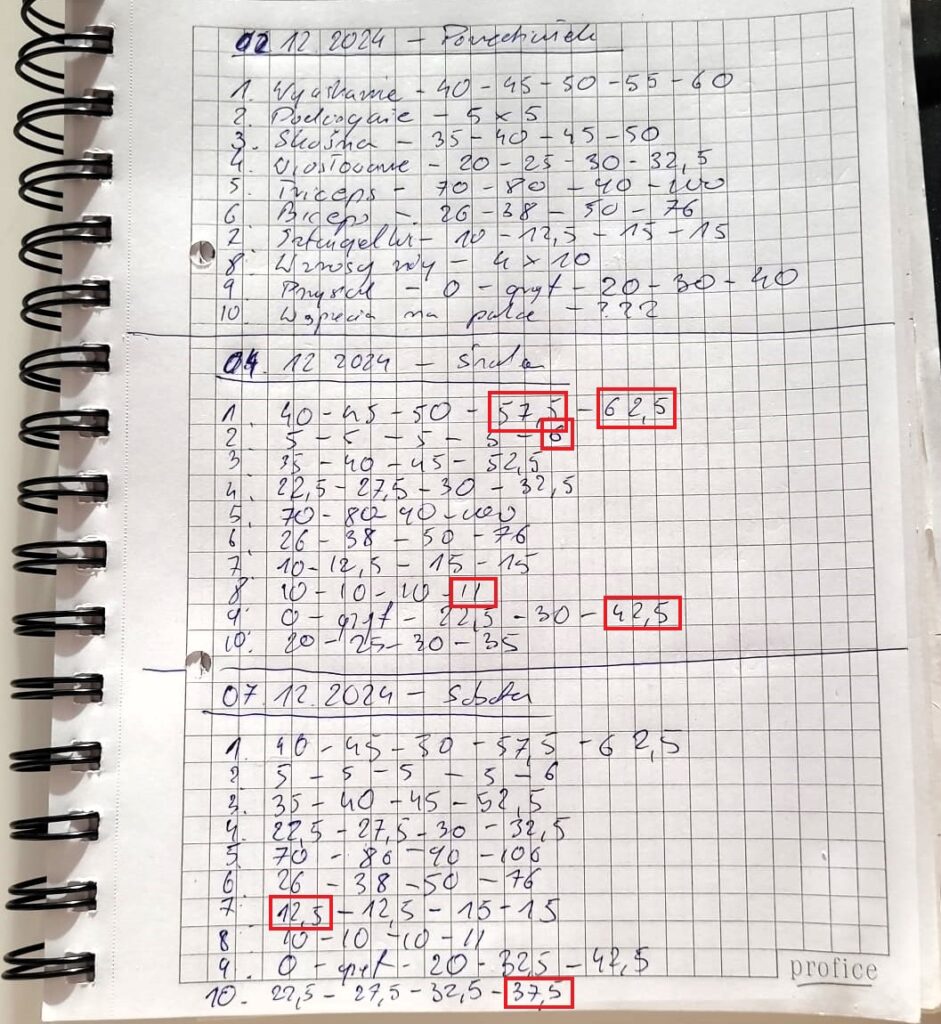 02.12.2024 – Poniedziałek
1. Wyciskanie – 40 – 45 – 50 – 55 – 60
2. Podciąganie – 5 x 5
3. Skośna – 35 – 40 – 45 – 50
4. Wiosłowanie – 20 – 25 – 30 – 32,5
5. Triceps – 70 – 80 – 90 – 100
6. Biceps – 26 – 38 – 50 – 76
7. Sztangelki – 10 – 12,5 – 15 – 15
8. Wznosy nóg – 4 x 10
9. Przysiad – 0 – gryf – 20 – 30 – 40
10. Wspięcia na palce – ? ? ?
04.12.2024 – Środa
1. 40 – 45 – 50 – 57,5 – 62,5
2. 5 – 5 – 5 – 5 – 6
3. 35 – 40 – 45 – 52,5
4. 22,5 – 27,5 – 30 – 32,5
5. 70 – 80 – 90 – 100
6. 26 – 38 – 50 – 76
7. 10 – 12,5 – 15 – 15
8. 10 – 10 – 10 – 11
9. 0 – gryf – 22,5 – 30 – 42,5
10. 20 – 25 – 30 – 35
07.12.2024 – Sobota
1. 40 – 45 – 50 – 57,5 – 62,5
2. 5 – 5 – 5 – 5 – 6
3. 35 – 40 – 45 – 52,5
4. 22,5 – 27,5 – 30 – 32,5
5. 70 – 80 – 90 – 100
6. 26 – 38 – 50 – 76
7. 12,5 – 12,5 – 15 – 15
8. 10 – 10 – 10 – 11
9. 0 – gryf – 20 – 32,5 – 42,5
profice
10. 22,5 – 27,5 – 32,5 – 37,5